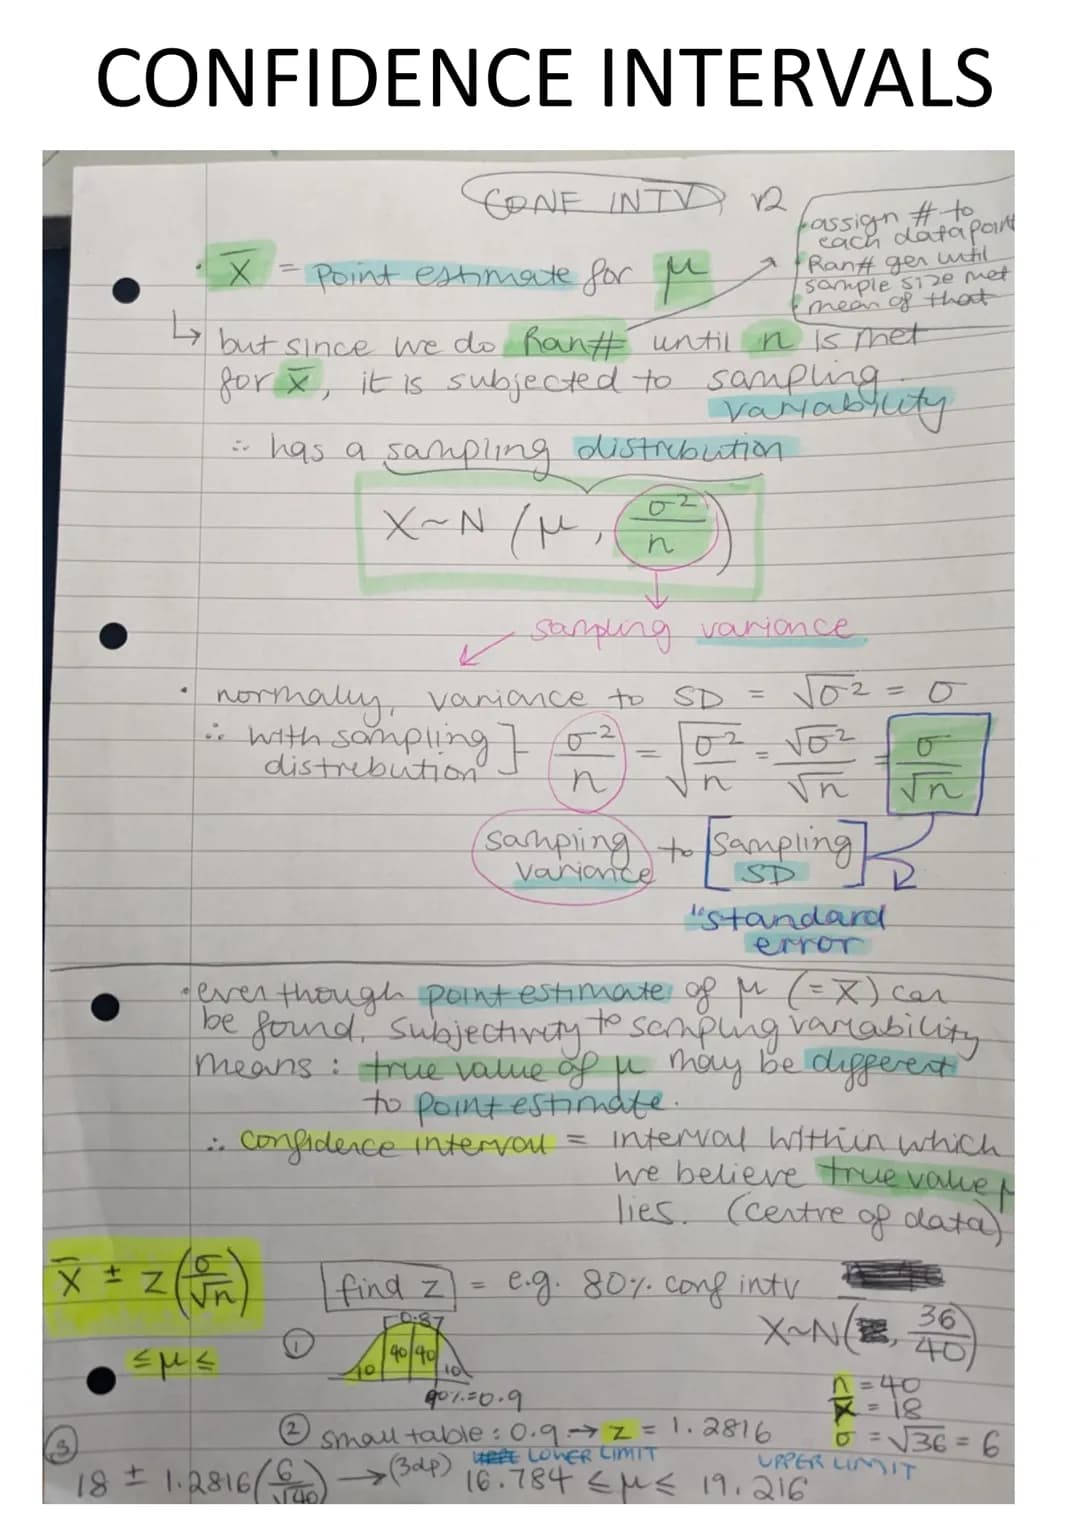 CONFIDENCE INTERVALS
CONF INTV
assign # to
each datapoint
Ran# gen until
sample size met
mean of that
· x̄ = Point estimate for μ
↳ but since we do Ran# until n is met
for x̄, it is subjected to sampling
variability
∴ has a sampling distribution
X~N (μ, σ²/n)
sampling variance
· normally, variance to SD = √σ² = σ
∴ with sampling
distrebution } σ²/n = √(σ²/n) = √σ²/√n = σ/√n
sampling variance to [sampling SD]
"standard
error
· even though point estimate of μ (= x̄) can
be found, Subjectivity to sampling variability
means : true value of μ may be different
to point estimate.
∴ confidence interval = interval within which
we believe true value μ
lies. (centre of data)
x̄ ± z(σ/√n)
find z = e.g. 80% conf intv
X~N( , 36/40)
≤μ≤
①
0.8
10 40 40 10
90%=0.9
n = 40
x̄ = 18
σ = √36 = 6
② small table : 0.9 → z = 1.2816
LOWER LIMIT
UPPER LIMIT
③ 18 ± 1.2816(6/√40) → (3dp) 16.784 ≤μ≤ 19.216